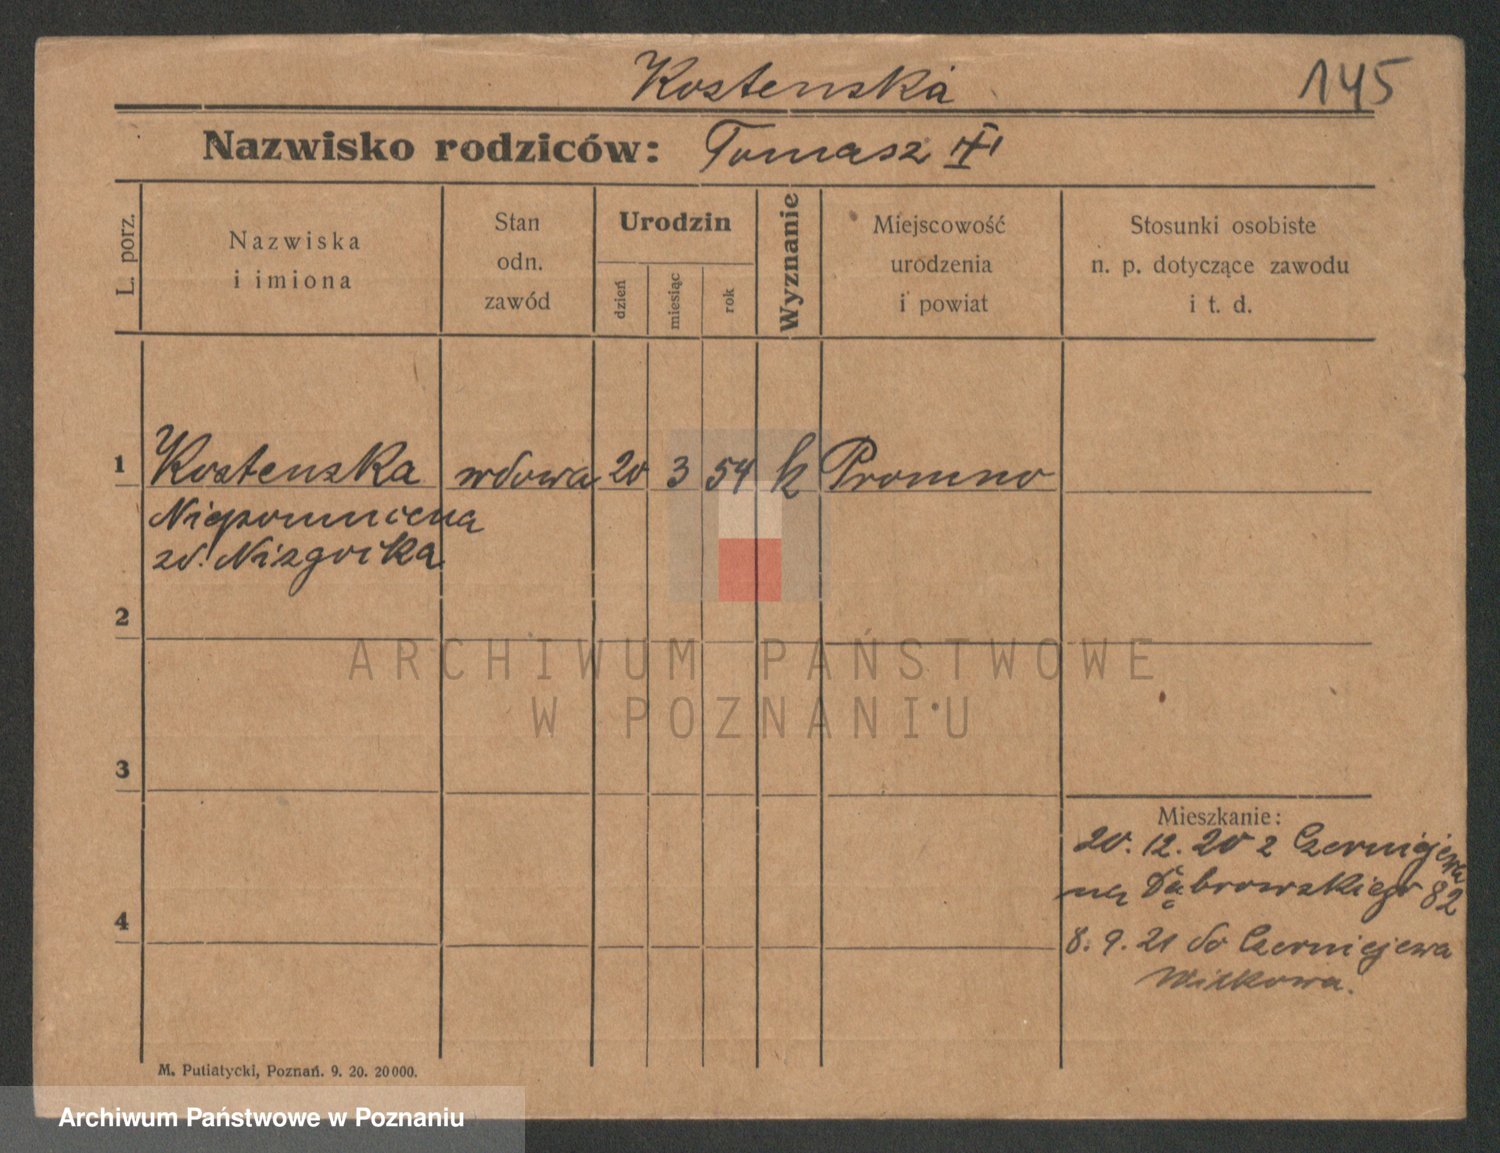 Kostenska
145
Nazwisko rodziców: Tomasz
L. porz.
Nazwiska
i imiona
Stan
odn.
zawód
Urodzin
dzień
miesiąc
rok
Wyznanie
Miejscowość
urodzenia
i powiat
Stosunki osobiste
n. p. dotyczące zawodu
i t. d.
1 Kostenska wdowa 20 3 54 k Promno
Niepomucena
zd. Nizgorka
2
3
4
Mieszkanie:
20. 12. 20 z Czerniejewa
na Dąbrowskiego 82
8. 9. 21 do Czerniejewa
Witkowa.
M. Putiatycki, Poznań. 9. 20. 20000.
ARCHIWUM PAŃSTWOWE
W POZNANIU
Archiwum Państwowe w Poznaniu